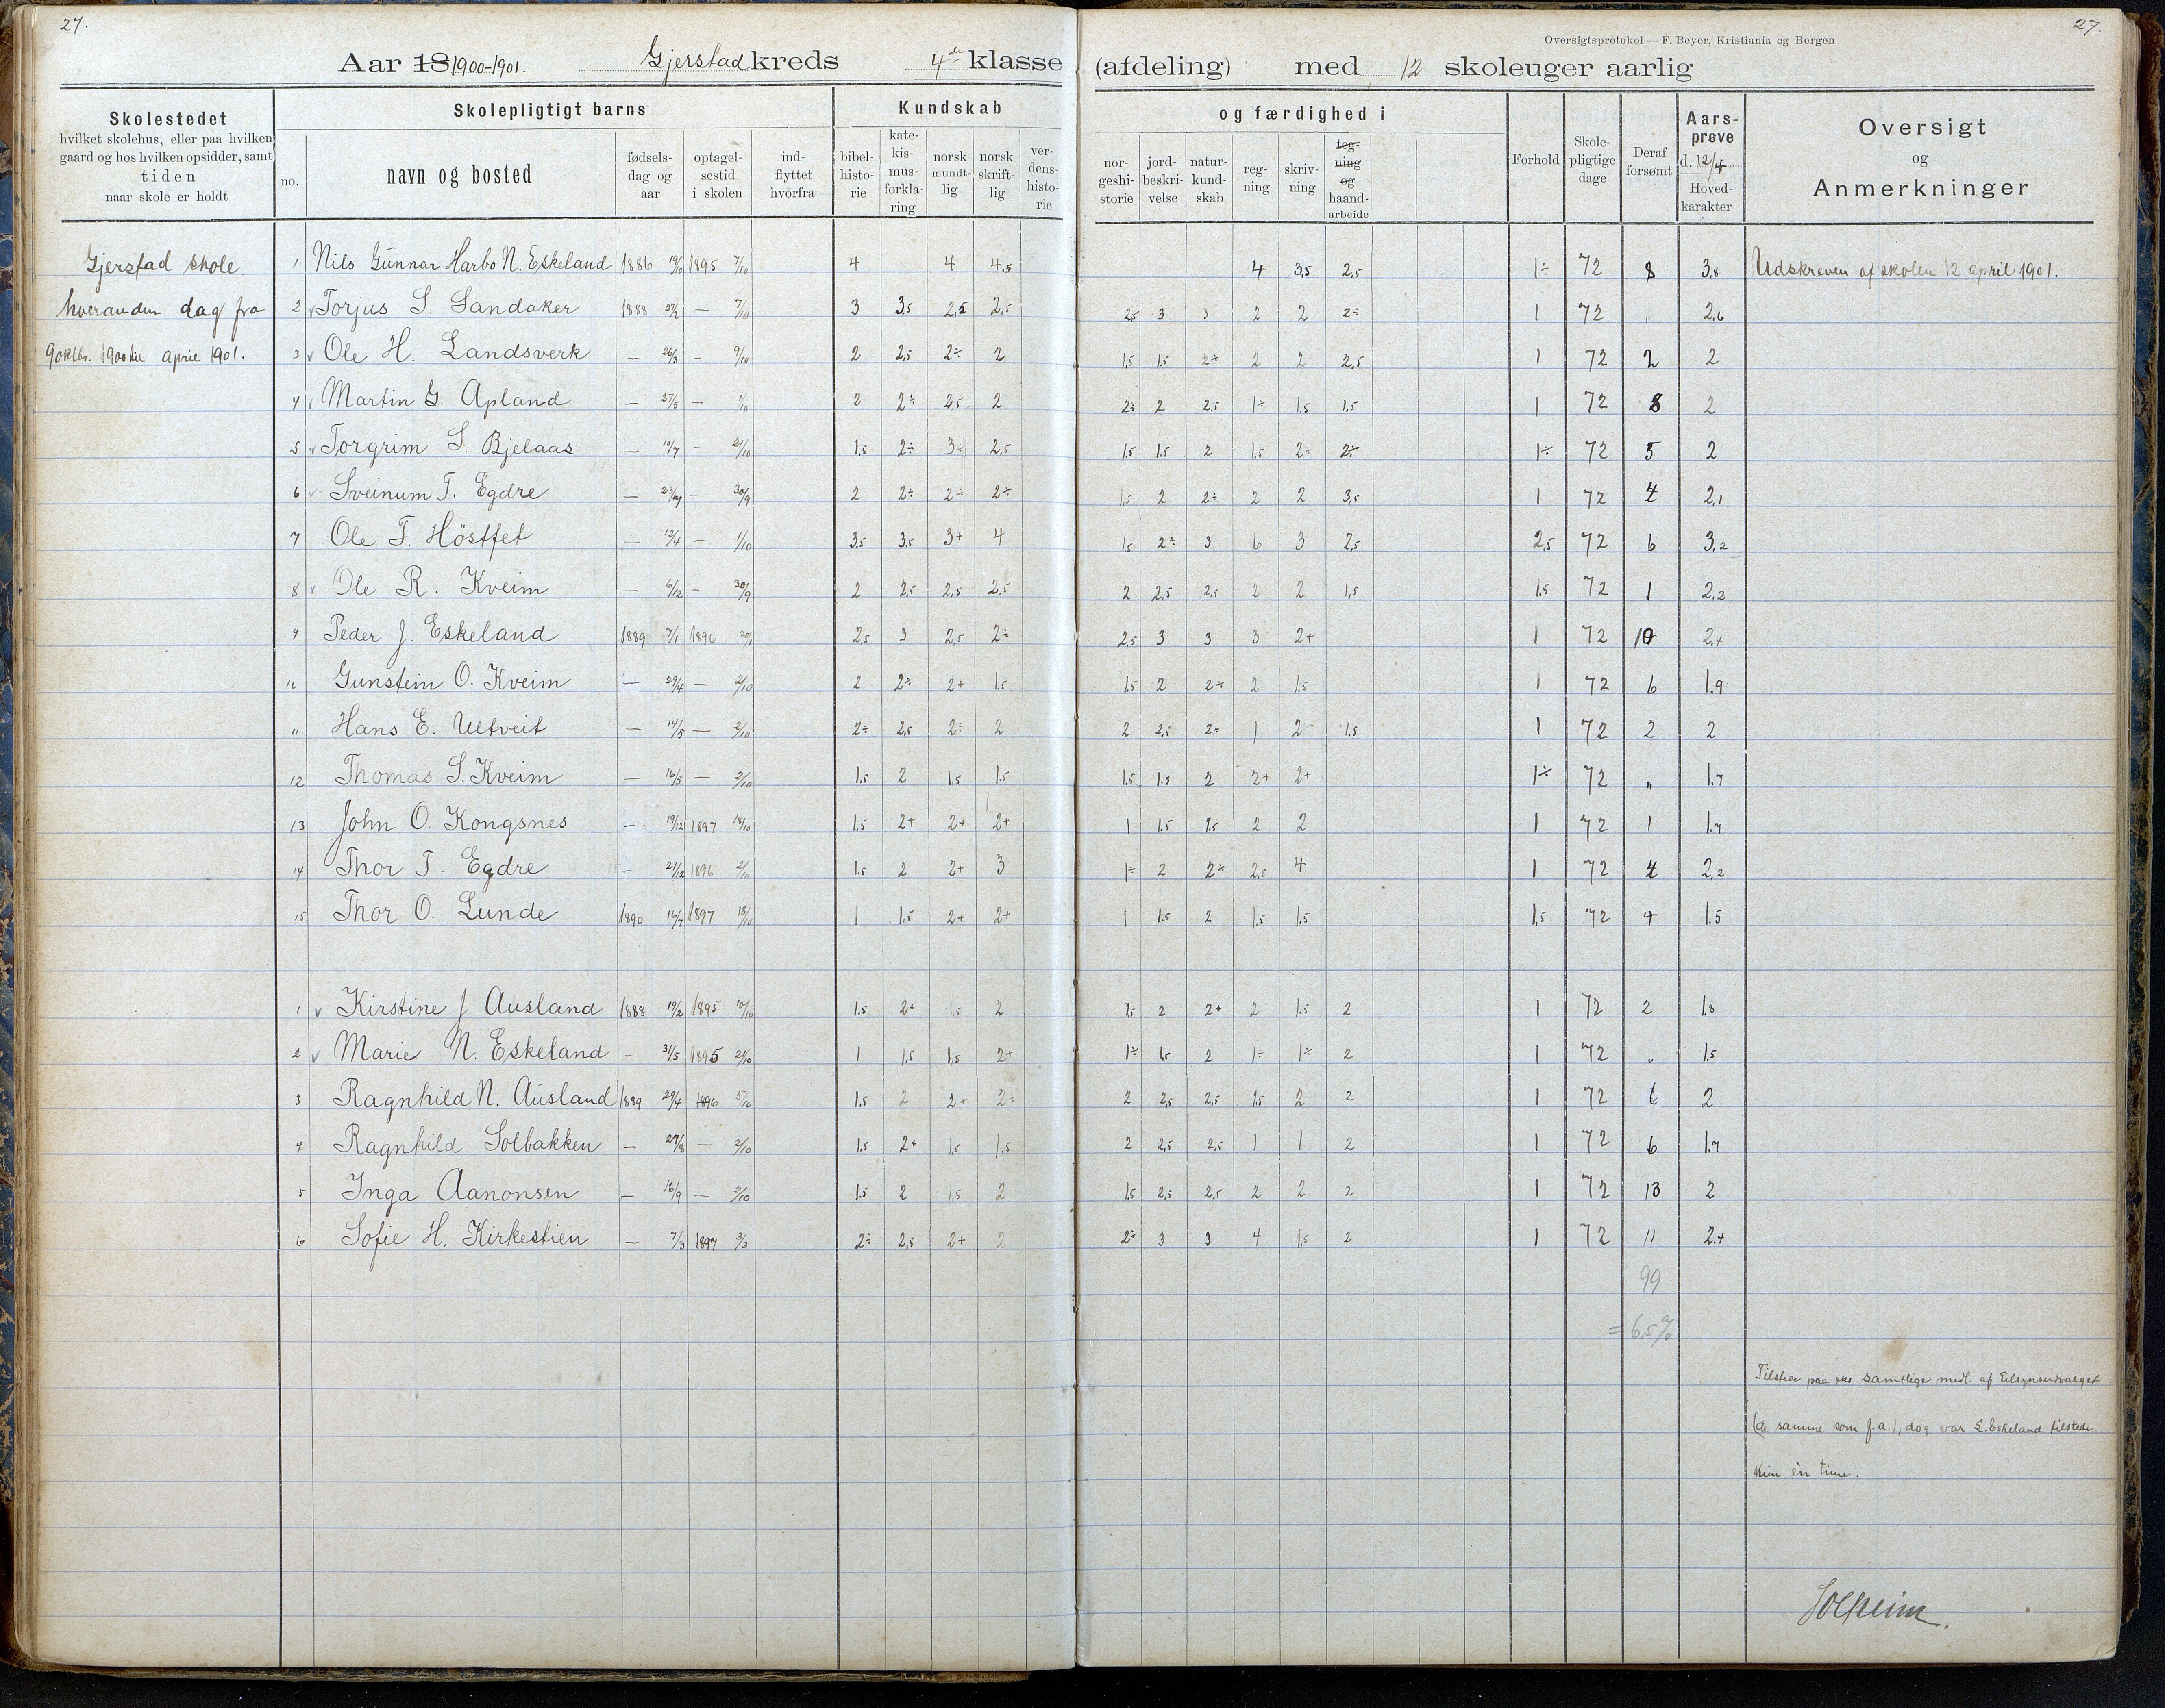 27.
27.
Oversigtsprotokol — F. Beyer, Kristiania og Bergen
Aar 18 1900-1901. Gjerstad kreds 4de klasse (afdeling) med 12 skoleuger aarlig
Skolestedet
hvilket skolehus, eller paa hvilken
gaard og hos hvilken opsidder, samt
tiden
naar skole er holdt
Skolepligtigt barns
no.
navn og bosted
fødsels-
dag og
aar
optagel-
sestid
i skolen
ind-
flyttet
hvorfra
Kundskab
bibel-
histo-
rie
kate-
kis-
mus-
forkla-
ring
norsk
mundt-
lig
norsk
skrift-
lig
ver-
dens-
histo-
rie
og færdighed i
nor-
geshi-
storie
jord-
beskri-
velse
natur-
kund-
skab
reg-
ning
skriv-
ning
teg-
ning
og
haand-
arbeide
Forhold
Skole-
pligtige
dage
Deraf
forsømt
Aars-
prøve
d. 12/4
Hoved-
karakter
Oversigt
og
Anmerkninger
Gjerstad skole
hveranden dag fra
9 oktbr. 1900 til april 1901.
1 Nils Gunnar Harbo N. Eskeland 1886 19/10 1895 7/10 4 4 4,5 4 3,5 2,5 1÷ 72 8 3,8 Udskreven af skolen 12 april 1901.
2 v Torjus S. Sandaker 1888 27/2 — 7/10 3 3,5 2,5 2,5 2,5 3 3 2 2 2÷ 1 72 " 2,6
3 v Ole H. Landsverk — 26/3 — 9/10 2 2,5 2÷ 2 1,5 1,5 2÷ 2 2 2,5 1 72 2 2
4 v Martin G. Apland — 27/5 — 1/10 2 2÷ 2,5 2 2÷ 2 2,5 1÷ 1,5 1,5 1 72 8 2
5 v Torgrim S. Bjelaas — 10/7 — 21/10 1,5 2÷ 3÷ 2,5 1,5 1,5 2 1,5 2÷ 2÷ 1÷ 72 5 2
6 v Sveinum T. Egdre — — 30/9 2 2÷ 2÷ 2÷ 1,5 2 2÷ 2 2 3,5 1 72 4 2,1
7 Ole T. Höstfet — 12/4 — 1/10 3,5 3,5 3+ 4 1,5 2÷ 3 6 3 2,5 2,5 72 6 3,2
8 v Ole R. Kveim — 6/12 — 30/9 2 2,5 2,5 2,5 2 2,5 2,5 2 2 1,5 1,5 72 1 2,2
9 Peder J. Eskeland 1889 7/1 1896 2,5 3 2,5 2÷ 2,5 3 3 3 2+ 1 72 10 2,4
10 Gunstein O. Kveim — 29/4 — 2/10 2 2÷ 2+ 1,5 1,5 2 2÷ 2 1,5 1 72 6 1,9
11 Hans E. Ueltveit — 14/5 — 2/10 2÷ 2,5 2÷ 2 2 2,5 2÷ 1 2 1,5 1 72 2 2
12 Thomas S. Kveim — 16/5 — 2/10 1,5 2 1,5 1,5 1,5 1,5 2 2+ 2+ 1÷ 72 " 1,7
13 John O. Kongsnes — 19/12 1897 18/10 1,5 2+ 2+ 2+ 1 1,5 1,5 2 2 1 72 1 1,7
14 Thor T. Egdre — 21/12 1896 2/10 1,5 2 2+ 3 1÷ 2 2÷ 2,5 4 1 72 4 2,2
15 Thor O. Lunde 1890 16/7 1897 18/10 1 1,5 2+ 2+ 1 1,5 2 1,5 1,5 1,5 72 4 1,5
1 v Kirstine J. Ausland 1888 19/2 1895 10/10 1,5 2+ 1,5 2 2 2+ 2 1,5 2 1 72 2 1,8
2 v Marie N. Eskeland — 31/5 1895 21/10 1 1,5 1,5 2+ 1÷ 1,5 2 1÷ 1÷ 2 1 72 " 1,5
3 Ragnhild N. Ausland 1889 29/4 1896 5/10 1,5 2 2+ 2÷ 2 2,5 2,5 1,5 2 2 1 72 6 2
4 Ragnhild Solbakken — 27/8 — 2/10 1,5 2+ 1,5 1,5 2 2,5 2,5 1 1 2 1 72 6 1,7
5 Inga Aanonsen — 16/9 — 2/10 1,5 2 1,5 2 1,5 2,5 2,5 2 2 2 1 72 13 2
6 Sofie H. Kirkestien — 7/3 1897 3/3 2÷ 2,5 2+ 2 2÷ 3 3 4 1,5 2 1 72 11 2,4
99
= 6,5 %
Tilstede paa samtlige medl. af tilsynsudvalget
(de samme som f. a.); dog var S. Eskeland tilstede
kun én time.
Solheim.